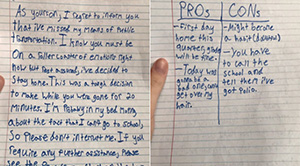 As your son, I regret to inform you
that i've missed my means of public
transportation. I know you must be
on a roller coaster of emotions right
now but rest assured, i've decided to
stay home. This was a tough decision
to make while you were gone for 20
minutes. I'm in my bed
about the fact that I can't go to school,
so Please don't interrupt me. If you
require any further assistance, Please
see the
PROs
- First day
home this
quarter,
will be fine.
- Today
was
gonna be a
bad one, can't
get over my
hair.
CONs
- Might become
a habit (doubtful)
- You have
to call the
school and
tell them I've
got Polio.